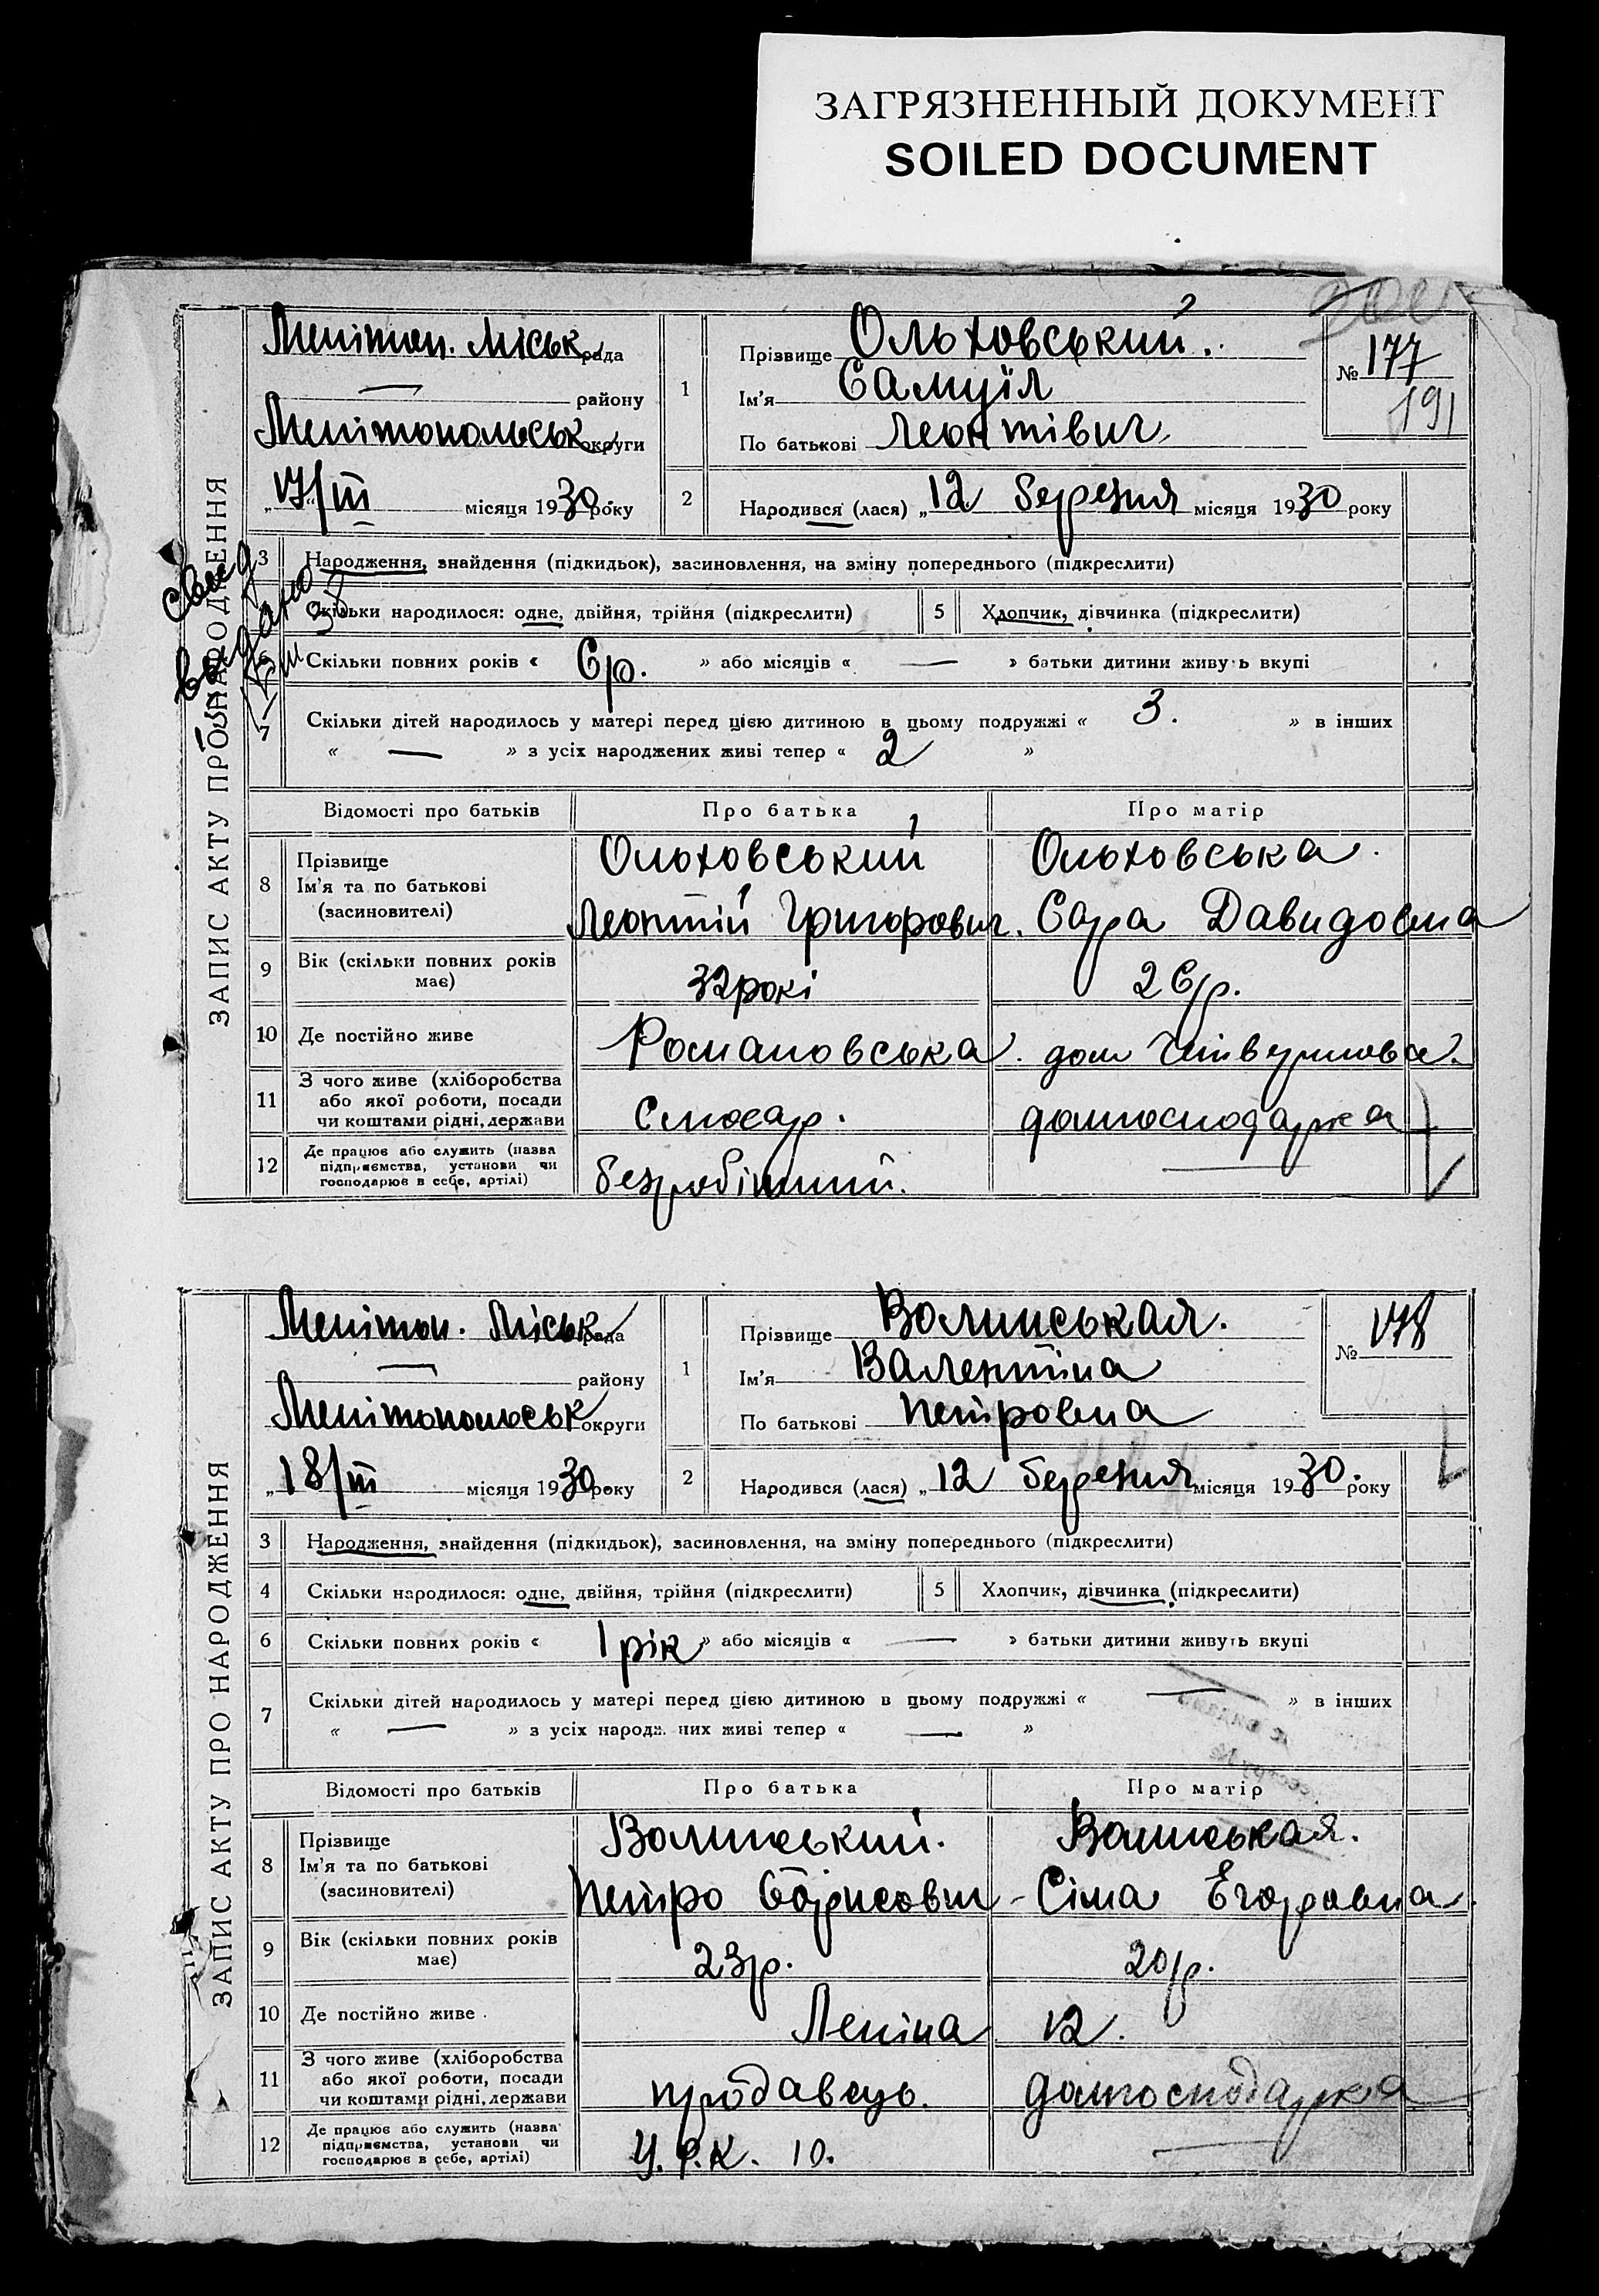 ЗАГРЯЗНЕННЫЙ ДОКУМЕНТ
SOILED DOCUMENT
ЗАПИС АКТУ ПРО НАРОДЖЕННЯ
Мелітоп. міськ рада
— району
Мелітопольськ округи
„17/III місяця 1930 року
1 Прізвище Ольховський.
Ім'я Самуїл
По батькові Леонтівич
№ 177
191
2 Народився (лася) „12 березня місяця 1930 року
3 Народження, знайдення (підкидьок), засиновлення, на зміну попереднього (підкреслити)
Скільки народилося: одне, двійня, трійня (підкреслити) 5 Хлопчик, дівчинка (підкреслити)
Скільки повних років « 6 р. » або місяців « — » батьки дитини живуть вкупі
7 Скільки дітей народилось у матері перед цією дитиною в цьому подружжі « 3. » в інших
« — » з усіх народжених живі тепер « 2 »
Відомості про батьків Про батька Про матір
8 Прізвище Ольховський Ольховська.
Ім'я та по батькові
(засиновителі) Леонтій Григорович. Сара Давидовна
9 Вік (скільки повних років має) 32 рокі 26 р.
10 Де постійно живе Романовська. дом
11 З чого живе (хліборобства
або якої роботи, посади
чи коштами рідні, держави Слюсар. домгосподарка
12 Де працює або служить (назва
підприємства, установи чи
господарює в себе, артілі) безробітний. —
ЗАПИС АКТУ ПРО НАРОДЖЕННЯ
Мелітоп. Міськ рада
— району
Мелітопольськ округи
„18/III місяця 1930 року
1 Прізвище Волинськая.
Ім'я Валентіна
По батькові Петровна
№ 178
2 Народився (лася) „12 березня місяця 1930. року
3 Народження, знайдення (підкидьок), засиновлення, на зміну попереднього (підкреслити)
4 Скільки народилося: одне, двійня, трійня (підкреслити) 5 Хлопчик, дівчинка (підкреслити)
6 Скільки повних років « 1 рік » або місяців « — » батьки дитини живуть вкупі
7 Скільки дітей народилось у матері перед цією дитиною в цьому подружжі « — » в інших
« — » з усіх народж. них живі тепер « — »
Відомості про батьків Про батька Про матір
8 Прізвище Волинський. Волинськая.
Ім'я та по батькові
(засиновителі) Петро Борисович - Сіма Егоровна.
9 Вік (скільки повних років має) 23 р. 20 р.
10 Де постійно живе Леніна 12.
11 З чого живе (хліборобства
або якої роботи, посади
чи коштами рідні, держави продавець. домгосподарка
12 Де працює або служить (назва
підприємства, установи чи
господарює в себе, артілі) У.Р.К. 10. —